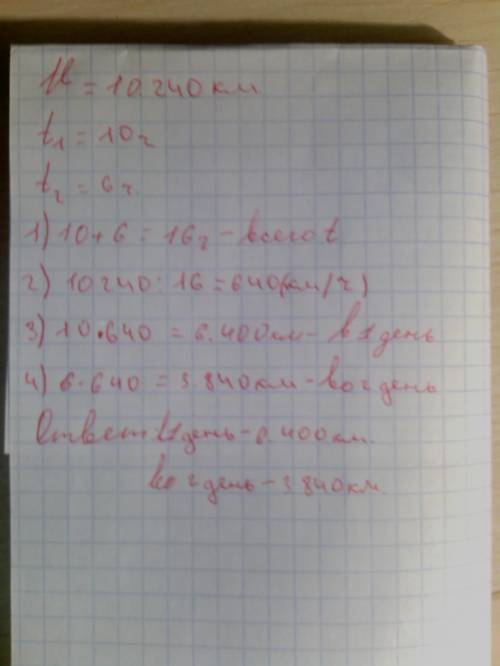 = 10.240 км
t₁ = 10ч
t₂ = 6ч
1) 10+6 = 16ч - всего t
2) 10240 : 16 = 640 (км/ч)
3) 10·640 = 6.400км - в 1 день
4) 6·640 = 3.840км - во 2 день
Ответ: в 1 день - 6.400км.
во 2 день - 3.840км.